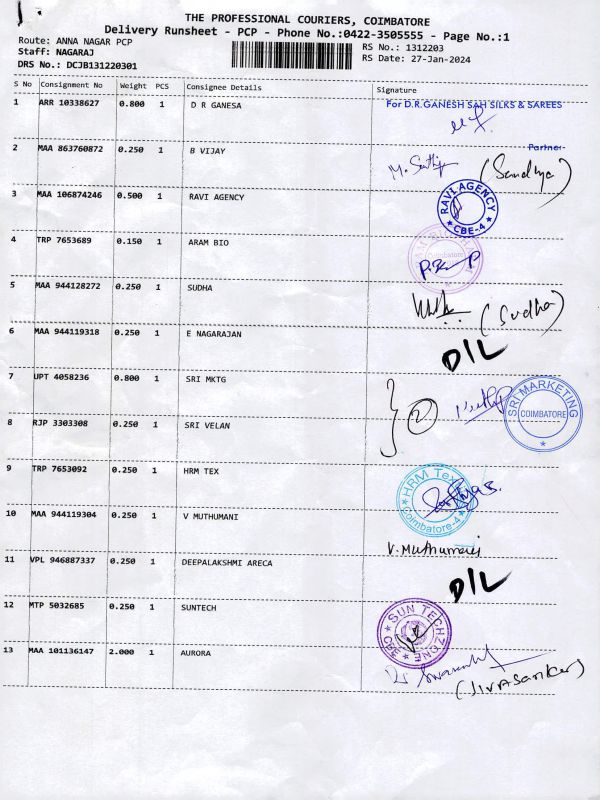 THE PROFESSIONAL COURIERS, COIMBATORE
Delivery Runsheet - PCP - Phone No.:0422-3505555 - Page No.:1
Route: ANNA NAGAR PCP
RS No.: 1312203
Staff: NAGARAJ
RS Date: 27-Jan-2024
DRS No.: DCJB131220301
S No Consignment No Weight PCS Consignee Details Signature
1 ARR 10338627 0.800 1 D R GANESA For D.R.GANESH SAH SILKS & SAREES
Partner
2 MAA 863760872 0.250 1 B VIJAY (Sandhya)
3 MAA 106874246 0.500 1 RAVI AGENCY RAVI AGENCY CBE-4
4 TRP 7653689 0.150 1 ARAM BIO Coimbatore
5 MAA 944128272 0.250 1 SUDHA (Sudha)
6 MAA 944119318 0.250 1 E NAGARAJAN D/L
7 UPT 4058236 0.800 1 SRI MKTG 2 SRI MARKETING COIMBATORE
8 RJP 3303308 0.250 1 SRI VELAN
9 TRP 7653092 0.250 1 HRM TEX HRM Tex Coimbatore-4
10 MAA 944119304 0.250 1 V MUTHUMANI V. Muthumani
11 VPL 946887337 0.250 1 DEEPALAKSHMI ARECA D/L
12 MTP 5032685 0.250 1 SUNTECH SUN TECHZONE CBE
13 MAA 101136147 2.000 1 AURORA (JIVASANKER)